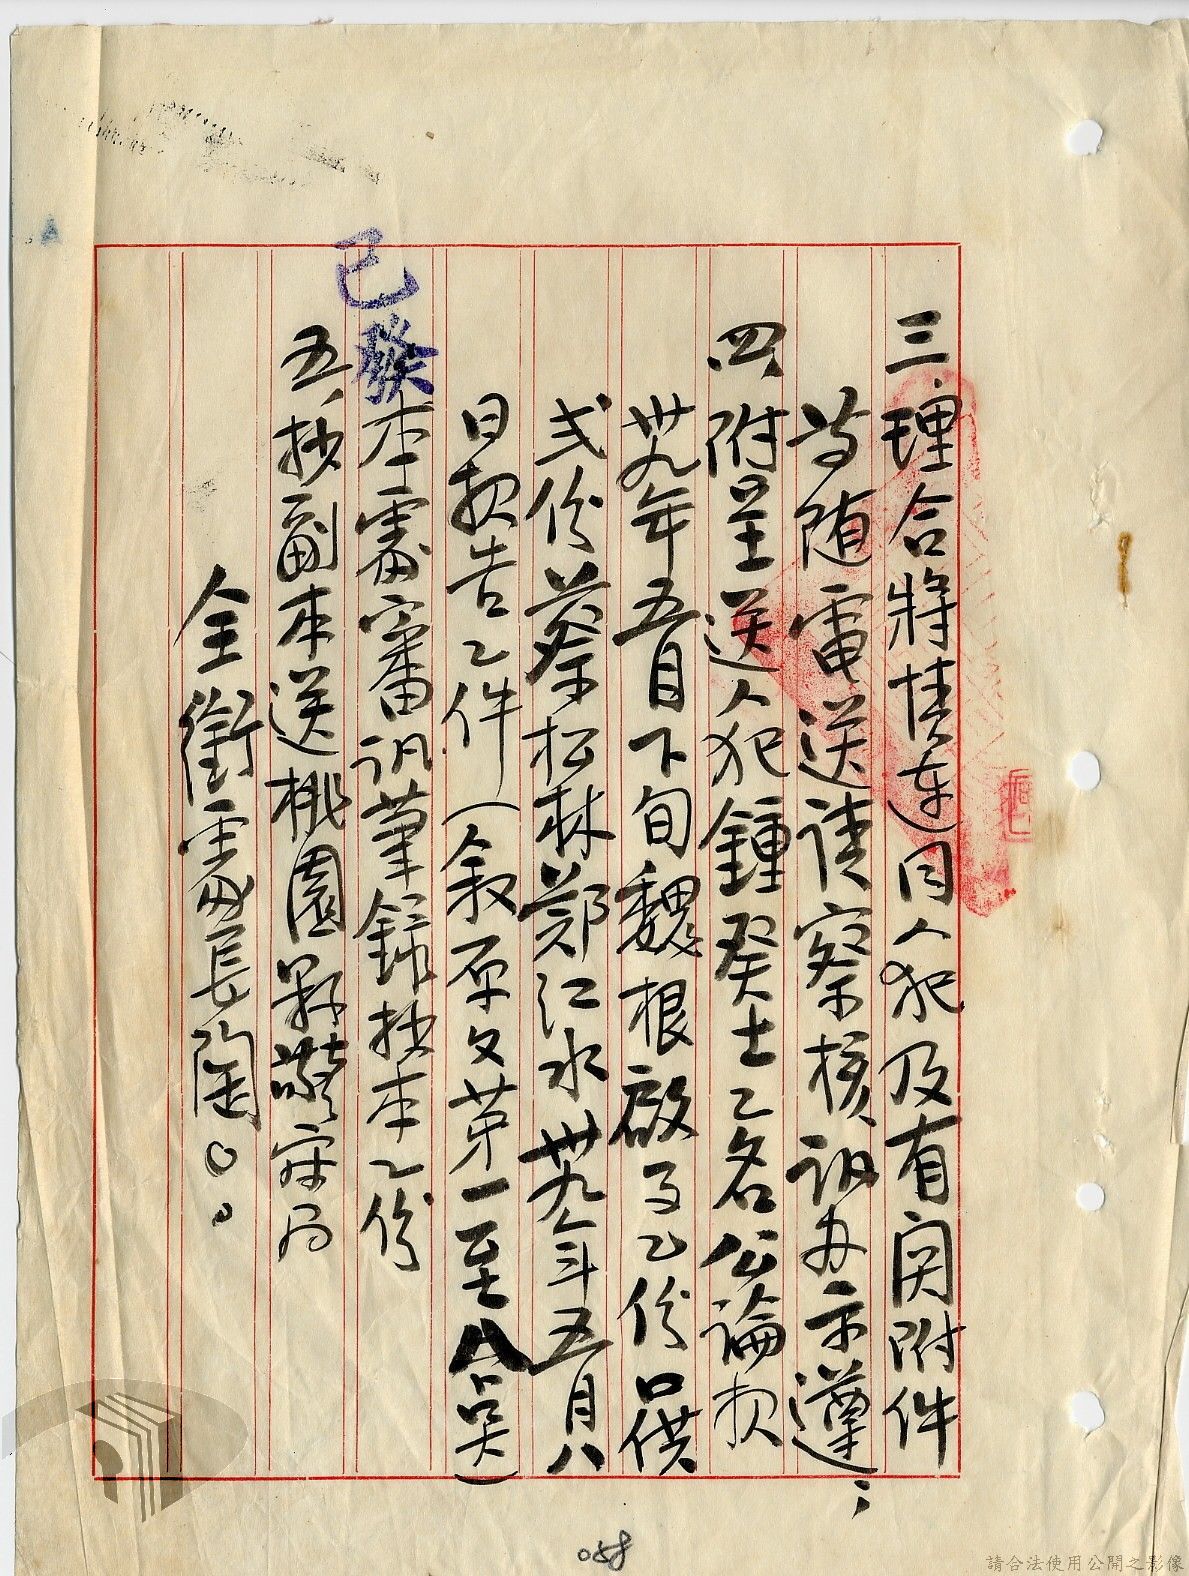 三、理合將情連同人犯及有関附件
等随電送請察核訊办示遵；
四、附呈送人犯鍾癸士乙名公論報
卅九年五月下旬魏根啟事乙份口供
弍份蔡松林鄭江水卅九年五月八
日報告乙件（叙原文第一至八吴）
本處審訊筆錄抄本乙份
五、抄副本送桃園縣警察局
全銜處長陶○。
已發
058
請合法使用公開之影像